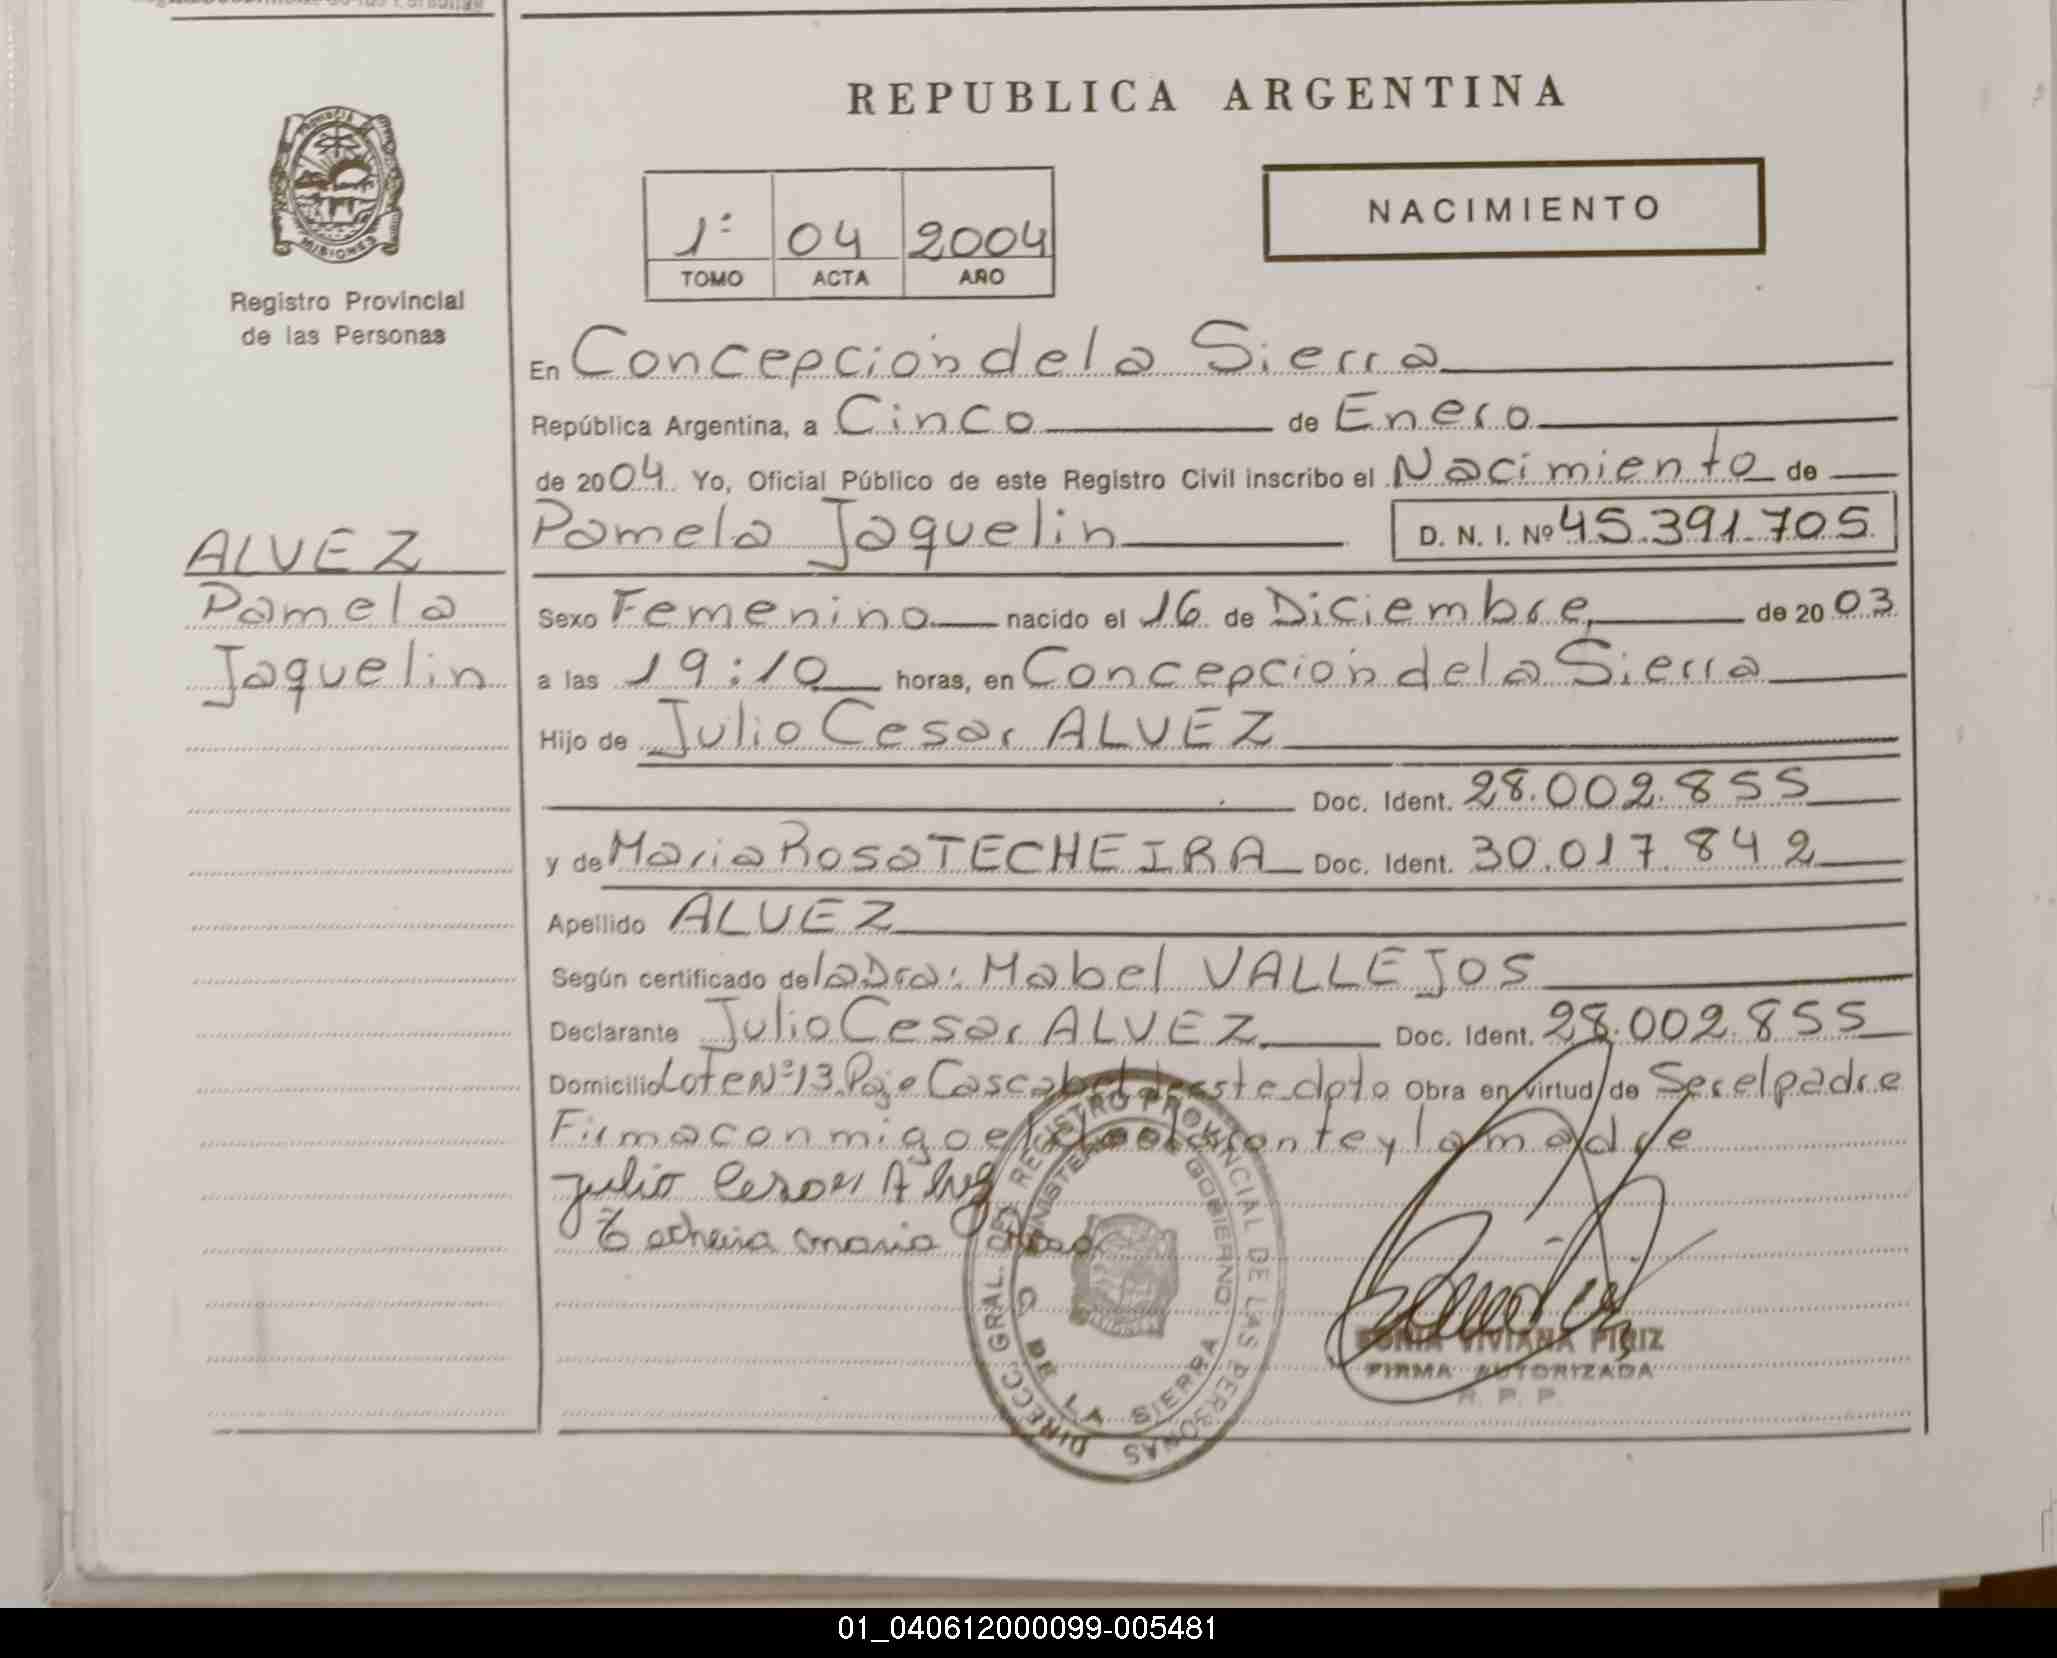 REPUBLICA ARGENTINA
PROVINCIA DE
MISIONES
Registro Provincial
de las Personas
1º 04 2004
TOMO ACTA AÑO
NACIMIENTO
En Concepción de la Sierra
República Argentina, a Cinco de Enero
de 2004 Yo, Oficial Público de este Registro Civil inscribo el Nacimiento de
Pamela Jaquelin D. N. I. Nº 45.391.705
ALVEZ
Pamela
Jaquelin
Sexo Femenino nacido el 16 de Diciembre de 2003
a las 19:10 horas, en Concepción de la Sierra
Hijo de Julio Cesar ALVEZ
Doc. Ident. 28.002.855
y de Maria Rosa TECHEIRA Doc. Ident. 30.017.842
Apellido ALVEZ
Según certificado de la Dra: Mabel VALLEJOS
Declarante Julio Cesar ALVEZ Doc. Ident. 28.002.855
Domicilio Lote Nº 13. Paje Cascabel de este dpto Obra en virtud de Ser el padre
Firma conmigo el declarante y la madre
Julio Cesar Alvez
Techeira maria Rosa
DIRECC. GRAL. DEL REGISTRO PROVINCIAL DE LAS PERSONAS
MINISTERIO DE GOBIERNO
C. DE LA SIERRA
SONIA VIVIANA PIRIZ
FIRMA AUTORIZADA
R. P. P.
01_040612000099-005481